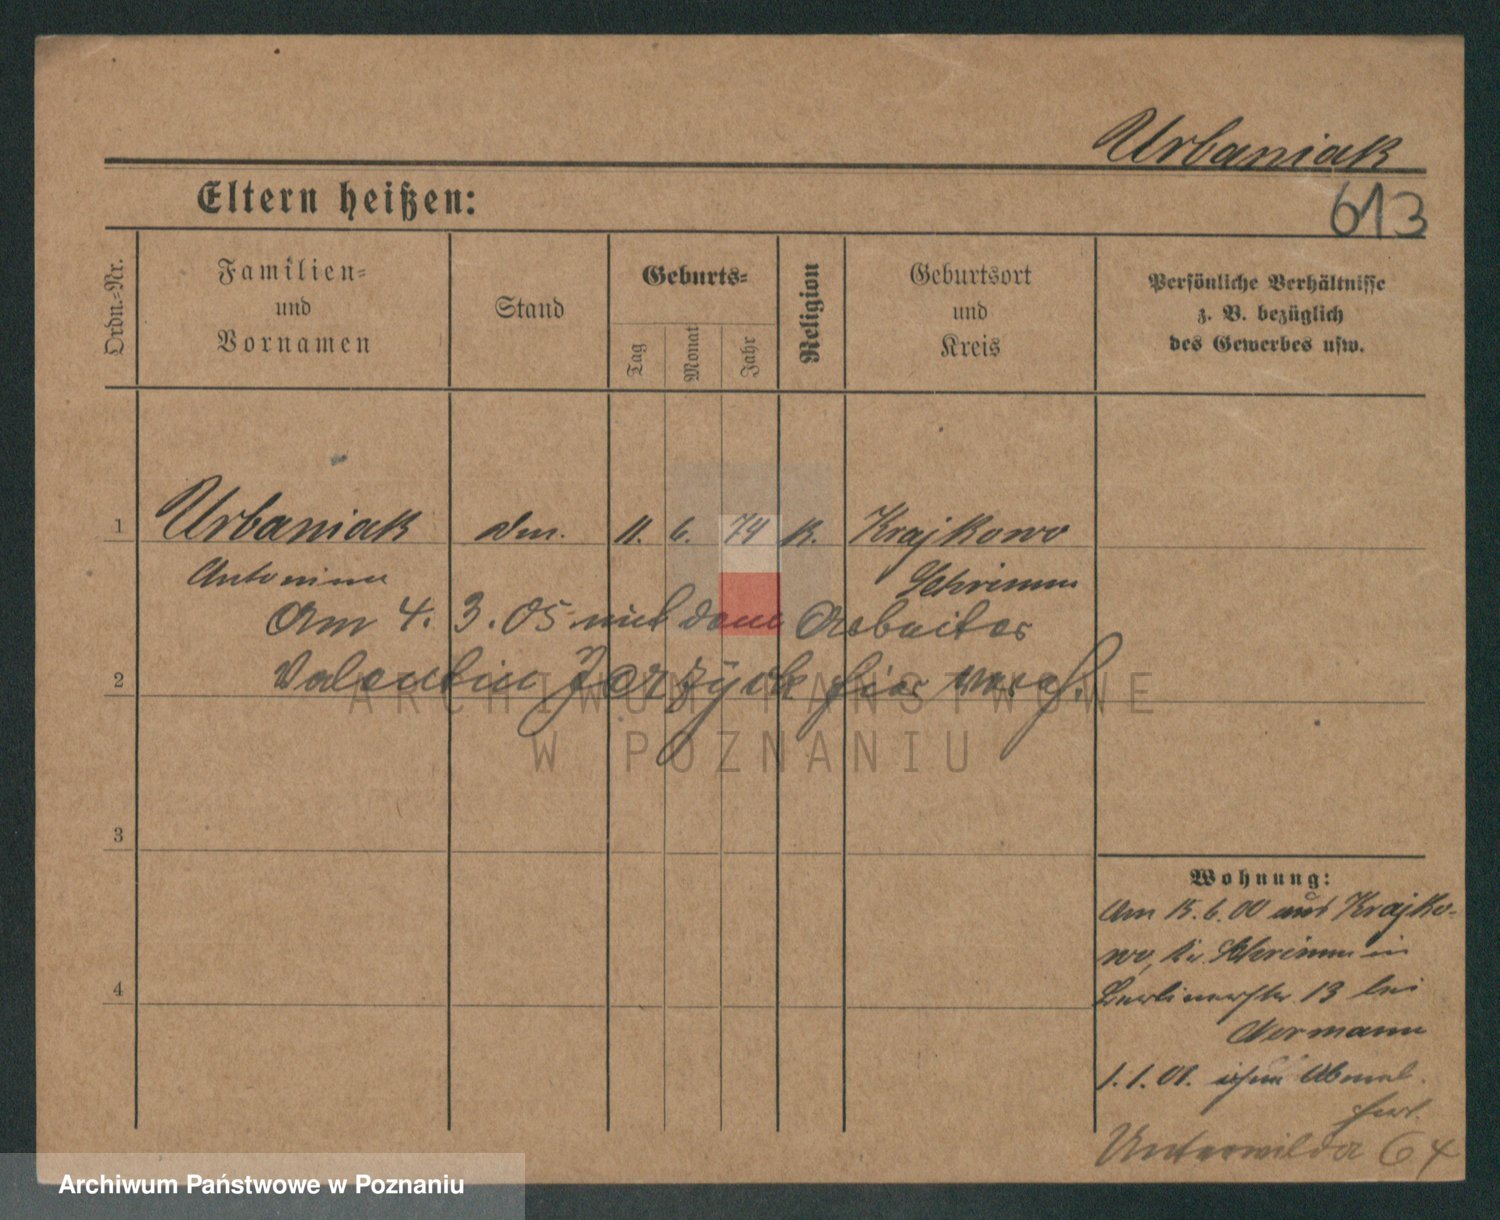 Urbaniak
613
Eltern heißen:
Ordn.-Nr.
Familien-
und
Vornamen
Stand
Geburts-
Tag
Monat
Jahr
Religion
Geburtsort
und
Kreis
Persönliche Verhältnisse
z. B. bezüglich
des Gewerbes usw.
1 Urbaniak 11. 6. 74 K. Krajkowo
Antonina Schrimm
Am 4. 3. 05 mit dem Arbeiter
2 Valentin hier verh.
ARCHIWUM PAŃSTWOWE
W POZNANIU
3
4
Wohnung:
Am 15. 6. 00 aus Krajko-
wo, Kr. Schrimm in
Berlinerstr. 13 bei
1. 1. 01. ohne Abmel.
fort.
Unterwilda 64
Archiwum Państwowe w Poznaniu